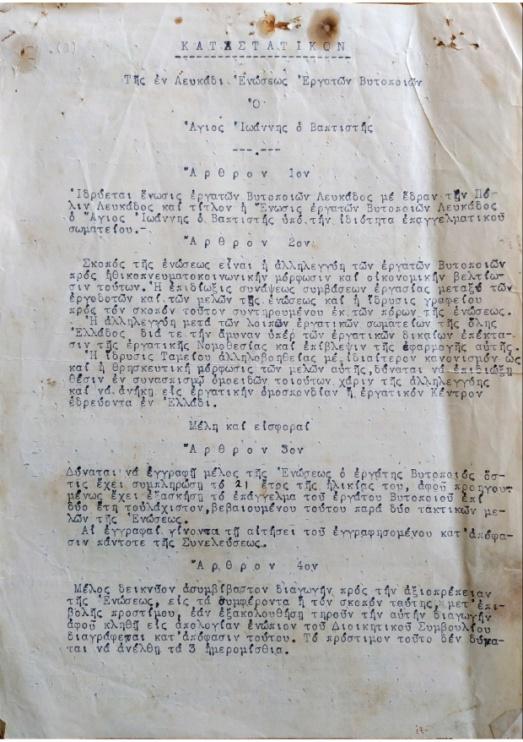 ΚΑΤΑΣΤΑΤΙΚΟΝ
Τῆς ἐν Λευκάδι Ἑνώσεως Ἐργατῶν Βυτοποιῶν
Ὁ
Ἅγιος Ἰωάννης ὁ Βαπτιστής
Ἄρθρον 1ον
Ἱδρύεται ἕνωσις ἐργατῶν Βυτοποιῶν Λευκάδος μέ ἕδραν τήν Πό-
λιν Λευκάδος καί τίτλον ἡ Ἕνωσις ἐργατῶν Βυτοποιῶν Λευκάδος
ὁ Ἅγιος Ἰωάννης ὁ Βαπτιστής ὑπό τήν ἰδιότητα ἐπαγγελματικοῦ
σωματείου.-
Ἄρθρον 2ον.
Σκοπός τῆς ἑνώσεως εἶναι ἡ ἀλληλεγγύη τῶν ἐργατῶν Βυτοποιῶν
πρός ἠθικοπνευματοκοινωνικήν μόρφωσιν καί οἰκονομικήν βελτίω-
σιν τούτων. Ἡ ἐπιδίωξις συνάψεως συμβάσεων ἐργασίας μεταξύ τῶν
ἐργοδοτῶν καί τῶν μελῶν τῆς ἑνώσεως καί ἡ ἵδρυσις γραφείου
πρός τόν σκοπόν τοῦτον συντηρουμένου ἐκ τῶν πόρων τῆς ἑνώσεως.
Ἡ ἀλληλεγγύη μετά τῶν λοιπῶν ἐργατικῶν σωματείων τῆς ὅλης
Ἑλλάδος διά τε τήν ἄμυναν ὑπέρ τῶν ἐργατικῶν δικαίων ἐπέκτα-
σιν τῆς ἐργατικῆς Νομοθεσίας καί ἐπίβλεψιν τῆς ἐφαρμογῆς αὐτῆς.
Ἡ ἵδρυσις Ταμείου ἀλληλοβοηθείας μέ ἰδιαίτερον κανονισμόν ὡς
καί ἡ θρησκευτική μόρφωσις τῶν μελῶν αὐτῆς, δύναται νά ἐπιδιώξη
θέσιν ἐν συνασπισμῷ ὁμοειδῶν τοιούτων χάριν τῆς ἀλληλεγγύης
καί νά ἀνήκη εἰς ἐργατικήν ὁμοσπονδίαν ἤ ἐργατικόν Κέντρον
ἑδρεύοντα ἐν Ἑλλάδι.
Μέλη καί εἰσφοραί
Ἄρθρον 3ον
Δύναται νά ἐγγραφῆ μέλος τῆς Ἑνώσεως ὁ ἐργάτης Βυτοποιός ὅσ-
τις ἔχει συμπληρώση τό 21 ἔτος τῆς ἡλικίας του, ἀφοῦ προηγουτ
μένως ἔχει ἐξασκήση τό ἐπάγγελμα τοῦ ἐργάτου Βυτοποιοῦ ἐπί
δύο ἔτη τοὐλάχιστον, βεβαιουμένου τούτου παρά δύο τακτικῶν με-
λῶν τῆς Ἑνώσεως.
Αἱ ἐγγραφαί γίνονται τῆ αἰτήσει τοῦ ἐγγραφησομένου κατ' ἀπόφα-
σιν πάντοτε τῆς Συνελεύσεως.
Ἄρθρον 4ον
Μέλος δεικνῦον ἀσυμβίβαστον διαγωγήν πρός τήν ἀξιοπρέπειαν
τῆς Ἑνώσεως, εἰς τά συμφέροντα ἤ τόν σκοπόν ταύτης, μετ' ἐπι-
βολῆς προστίμου, ἐάν ἐξακολουθήση τηροῦν τήν αὐτήν διαγωγήν
ἀφοῦ κληθῆ εἰς ἀπολογίαν ἐνώπιον τοῦ Διοικητικοῦ Συμβουλίου
διαγράφεται κατ' ἀπόφασιν τούτου. Τό πρόστιμον τοῦτο δέν δύνα-
ται νά ἀνέλθη τά 3 ἡμερομίσθια.